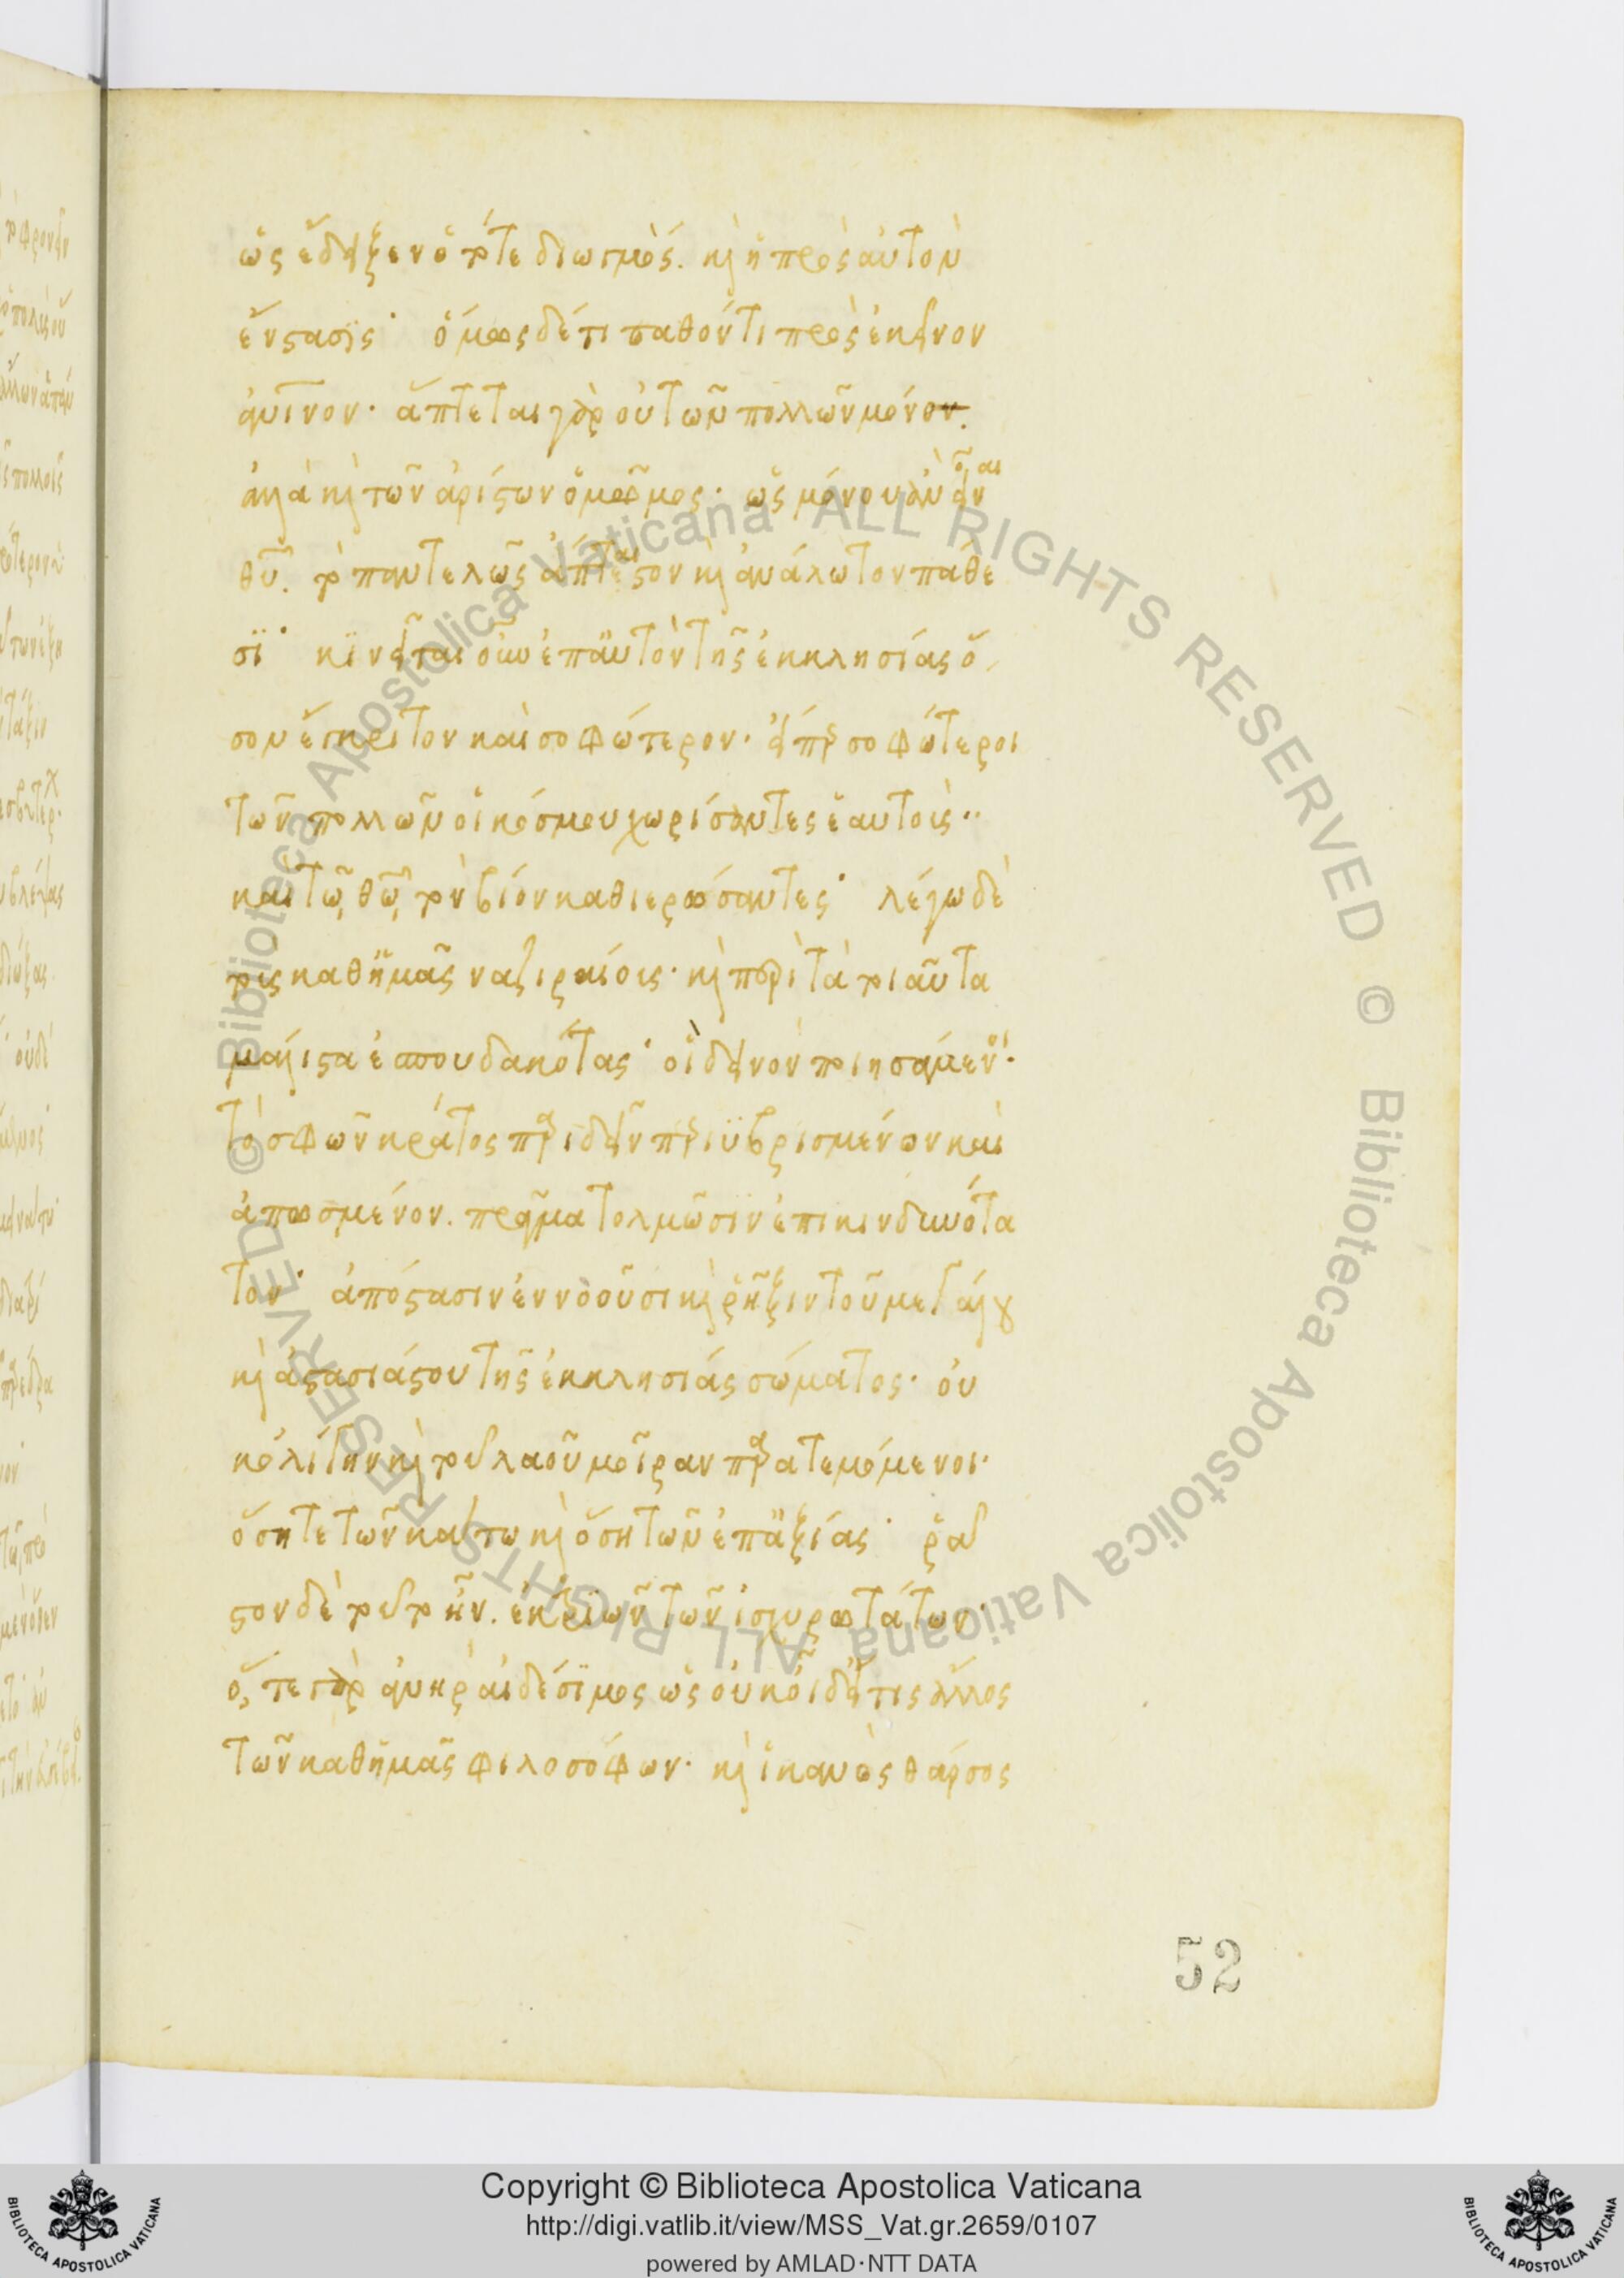 ὡς ἔδειξεν ὅ τότε διωγμὸς. καὶ ἡ πρὸς αὐτὸν
ἔνστασις· ὅμως δέ τι παθόντι πρὸς ἐκεῖνον
ἀνθρώπινον. ἅπτεται γὰρ οὐ τῶν πολλῶν μόνον.
ἀλλὰ καὶ τῶν ἀρίστων ὁ μῶμος· ὡς μόνου ἂν εἶναι
θυ. τὸ παντελῶς ἄπταιστον καὶ ἀνάλωτον πάθε
σϊ· κϊνεῖται οὖν ἐπαὐτὸν τῆς ἐκκλησίας ὅ
σον ἔκκριτον καὶ σοφώτερον· εἴπερ σοφώτεροι
τῶν πολλῶν οἱ κόσμου χωρίσαντες ἑαυτοὺς··
καὶ τῶ θω τὸν βίον καθιερώσαντες· λέγω δὲ
τοὺς καθἡμᾶς ναζιραίους· καὶ περὶ τὰ τοιαῦτα
μάλιστα ἐσπουδακότας· οἳ δεινὸν ποιησάμενοι·
τὸ σφῶν κράτος περιϊδεῖν περιϋβρισμένον καὶ
ἀπωσμένον. πρᾶγμα τολμῶσιν ἐπικινδυνότα
τον· ἀπόστασιν ἐννοοῦσι καὶ ῥῆξιν τοῦ μεγάλου
καὶ ἀστασιάστου τῆς ἐκκλησίας σώματος· οὐ
κὀλίγην καὶ τοῦ λαοῦ μοῖραν παρατεμόμενοι·
ὅση τε τῶν κάτω καὶ ὅση τῶν ἐπἀξίας· ῥᾶ
στον δὲ τοῦτο ἦν. ἐκ τριῶν τῶν ἰσχυροτάτων·
ὅ, τε γὰρ ἀνὴρ αἰδέσϊμος ὡς οὐκ οἶδ εἴ τις ἄλλος
τῶν καθἡμᾶς φιλοσόφων· καὶ ἱκανὸς θάρσος
52
Copyright © Biblioteca Apostolica Vaticana
http://digi.vatlib.it/view/MSS_Vat.gr.2659/0107
powered by AMLAD·NTT DATA
© Biblioteca Apostolica Vaticana ALL RIGHTS RESERVED © Biblioteca Apostolica Vaticana ALL RIGHTS RESERVED
BIBLIOTECA APOSTOLICA VATICANA
BIBLIOTECA APOSTOLICA VATICANA